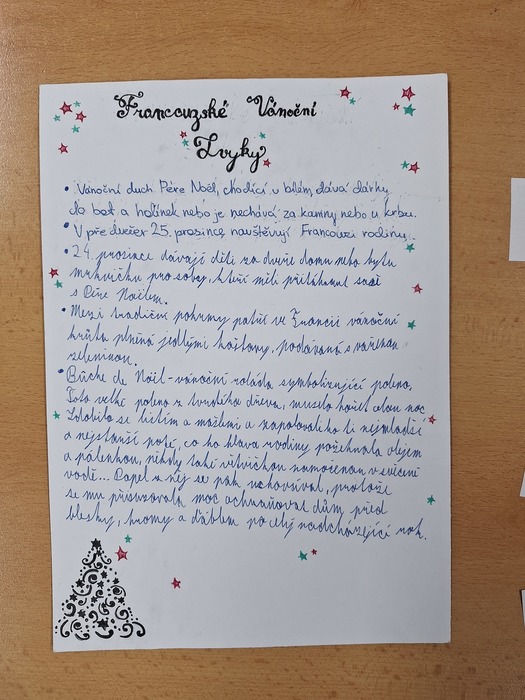 Francouzské Vánoční
Zvyky
• Vánoční duch Père Noël, chodící v bílém, dává dárky
do bot a holínek nebo je nechává za kamny nebo u krbu.
• V předvečer 25. prosince navštěvují Francouzi rodinu.
• 24. prosince dávají děti za dveře domu nebo bytu
mrkvičku pro soby, kteří měli přitáhnout saně
s Père Noëlem.
• Mezi tradiční pokrmy patří ve Francii vánoční
krůta plněná jedlými kaštany, podávaná s vařenou
zeleninou.
• Bûche de Noël - vánoční roláda symbolizující poleno.
Toto velké poleno z tvrdého dřeva, muselo hořet celou noc.
Zdobilo se listím a mašlemi a zapalovali ho ti nejmladší
a nejstarší poté, co ho hlava rodiny požehnala olejem
a pálenkou, někdy také větvičkou namočenou v svěcené
vodě... Popel z něj se pak uchovával, protože
se mu přisuzovala moc ochraňovat dům před
blesky, hromy a ďáblem po celý nadcházející rok.